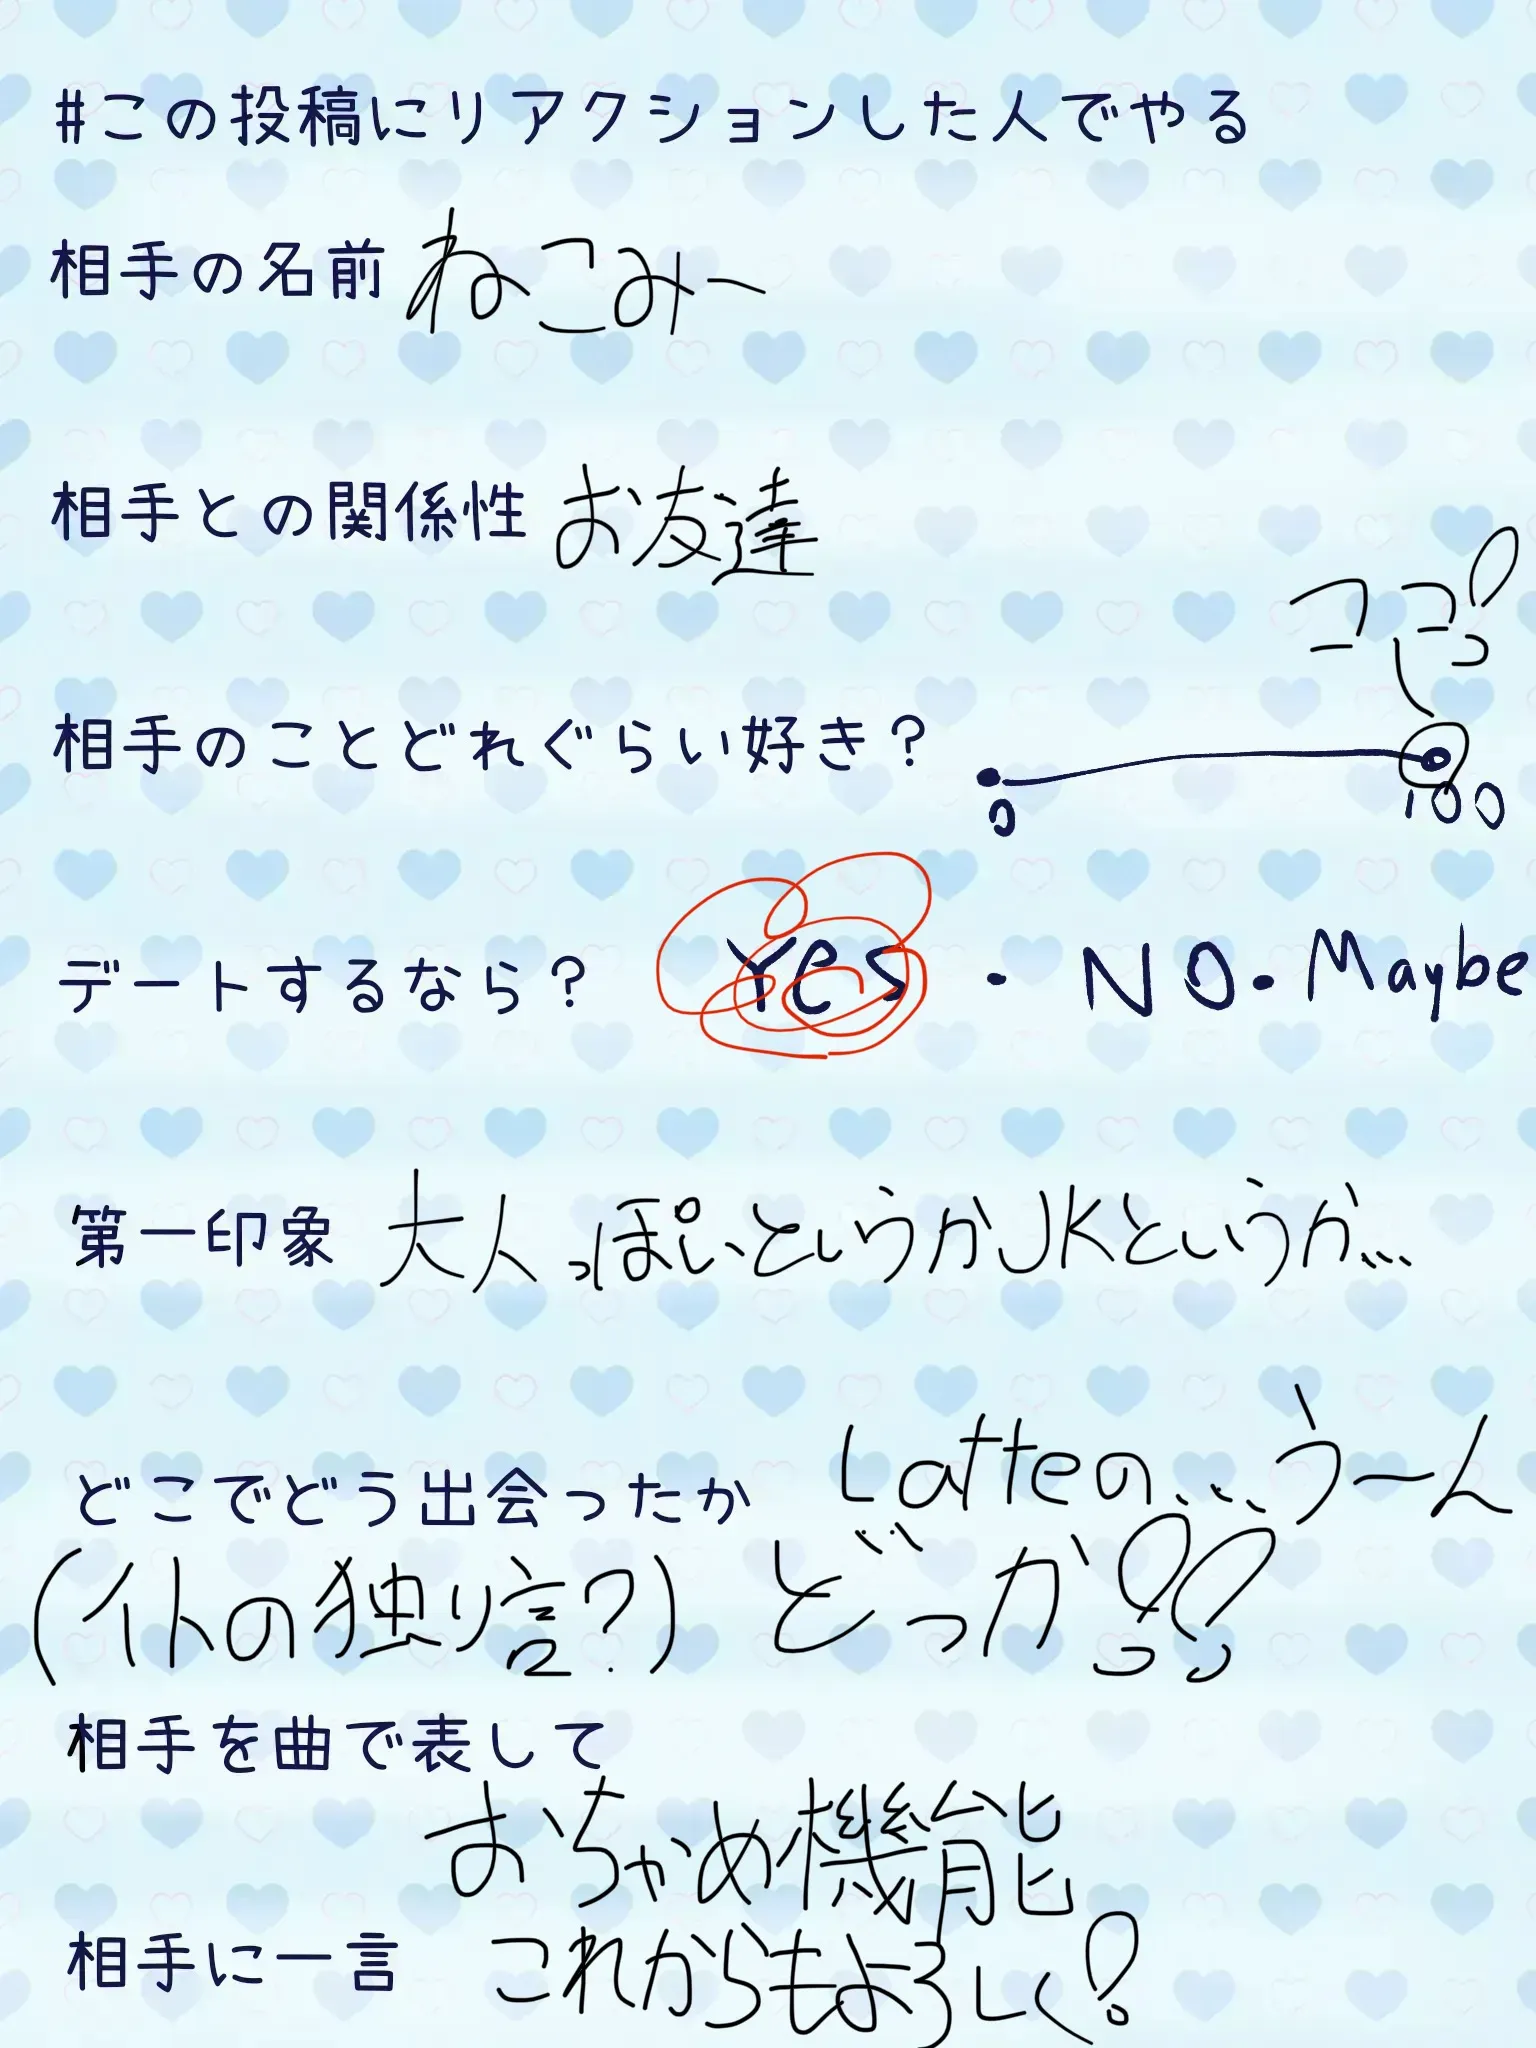 #この投稿にリアクションした人でやる
相手の名前 ねこみー
相手との関係性 お友達
ココ!
相手のことどれぐらい好き?
0 100
デートするなら? Yes・NO・Maybe
第一印象 大人っぽいというかJKというか…
どこでどう出会ったか Latteの……うーん
(仆の独り言?) どっか!!
相手を曲で表して
おちゃめ機能
相手に一言 これからもよろしく!